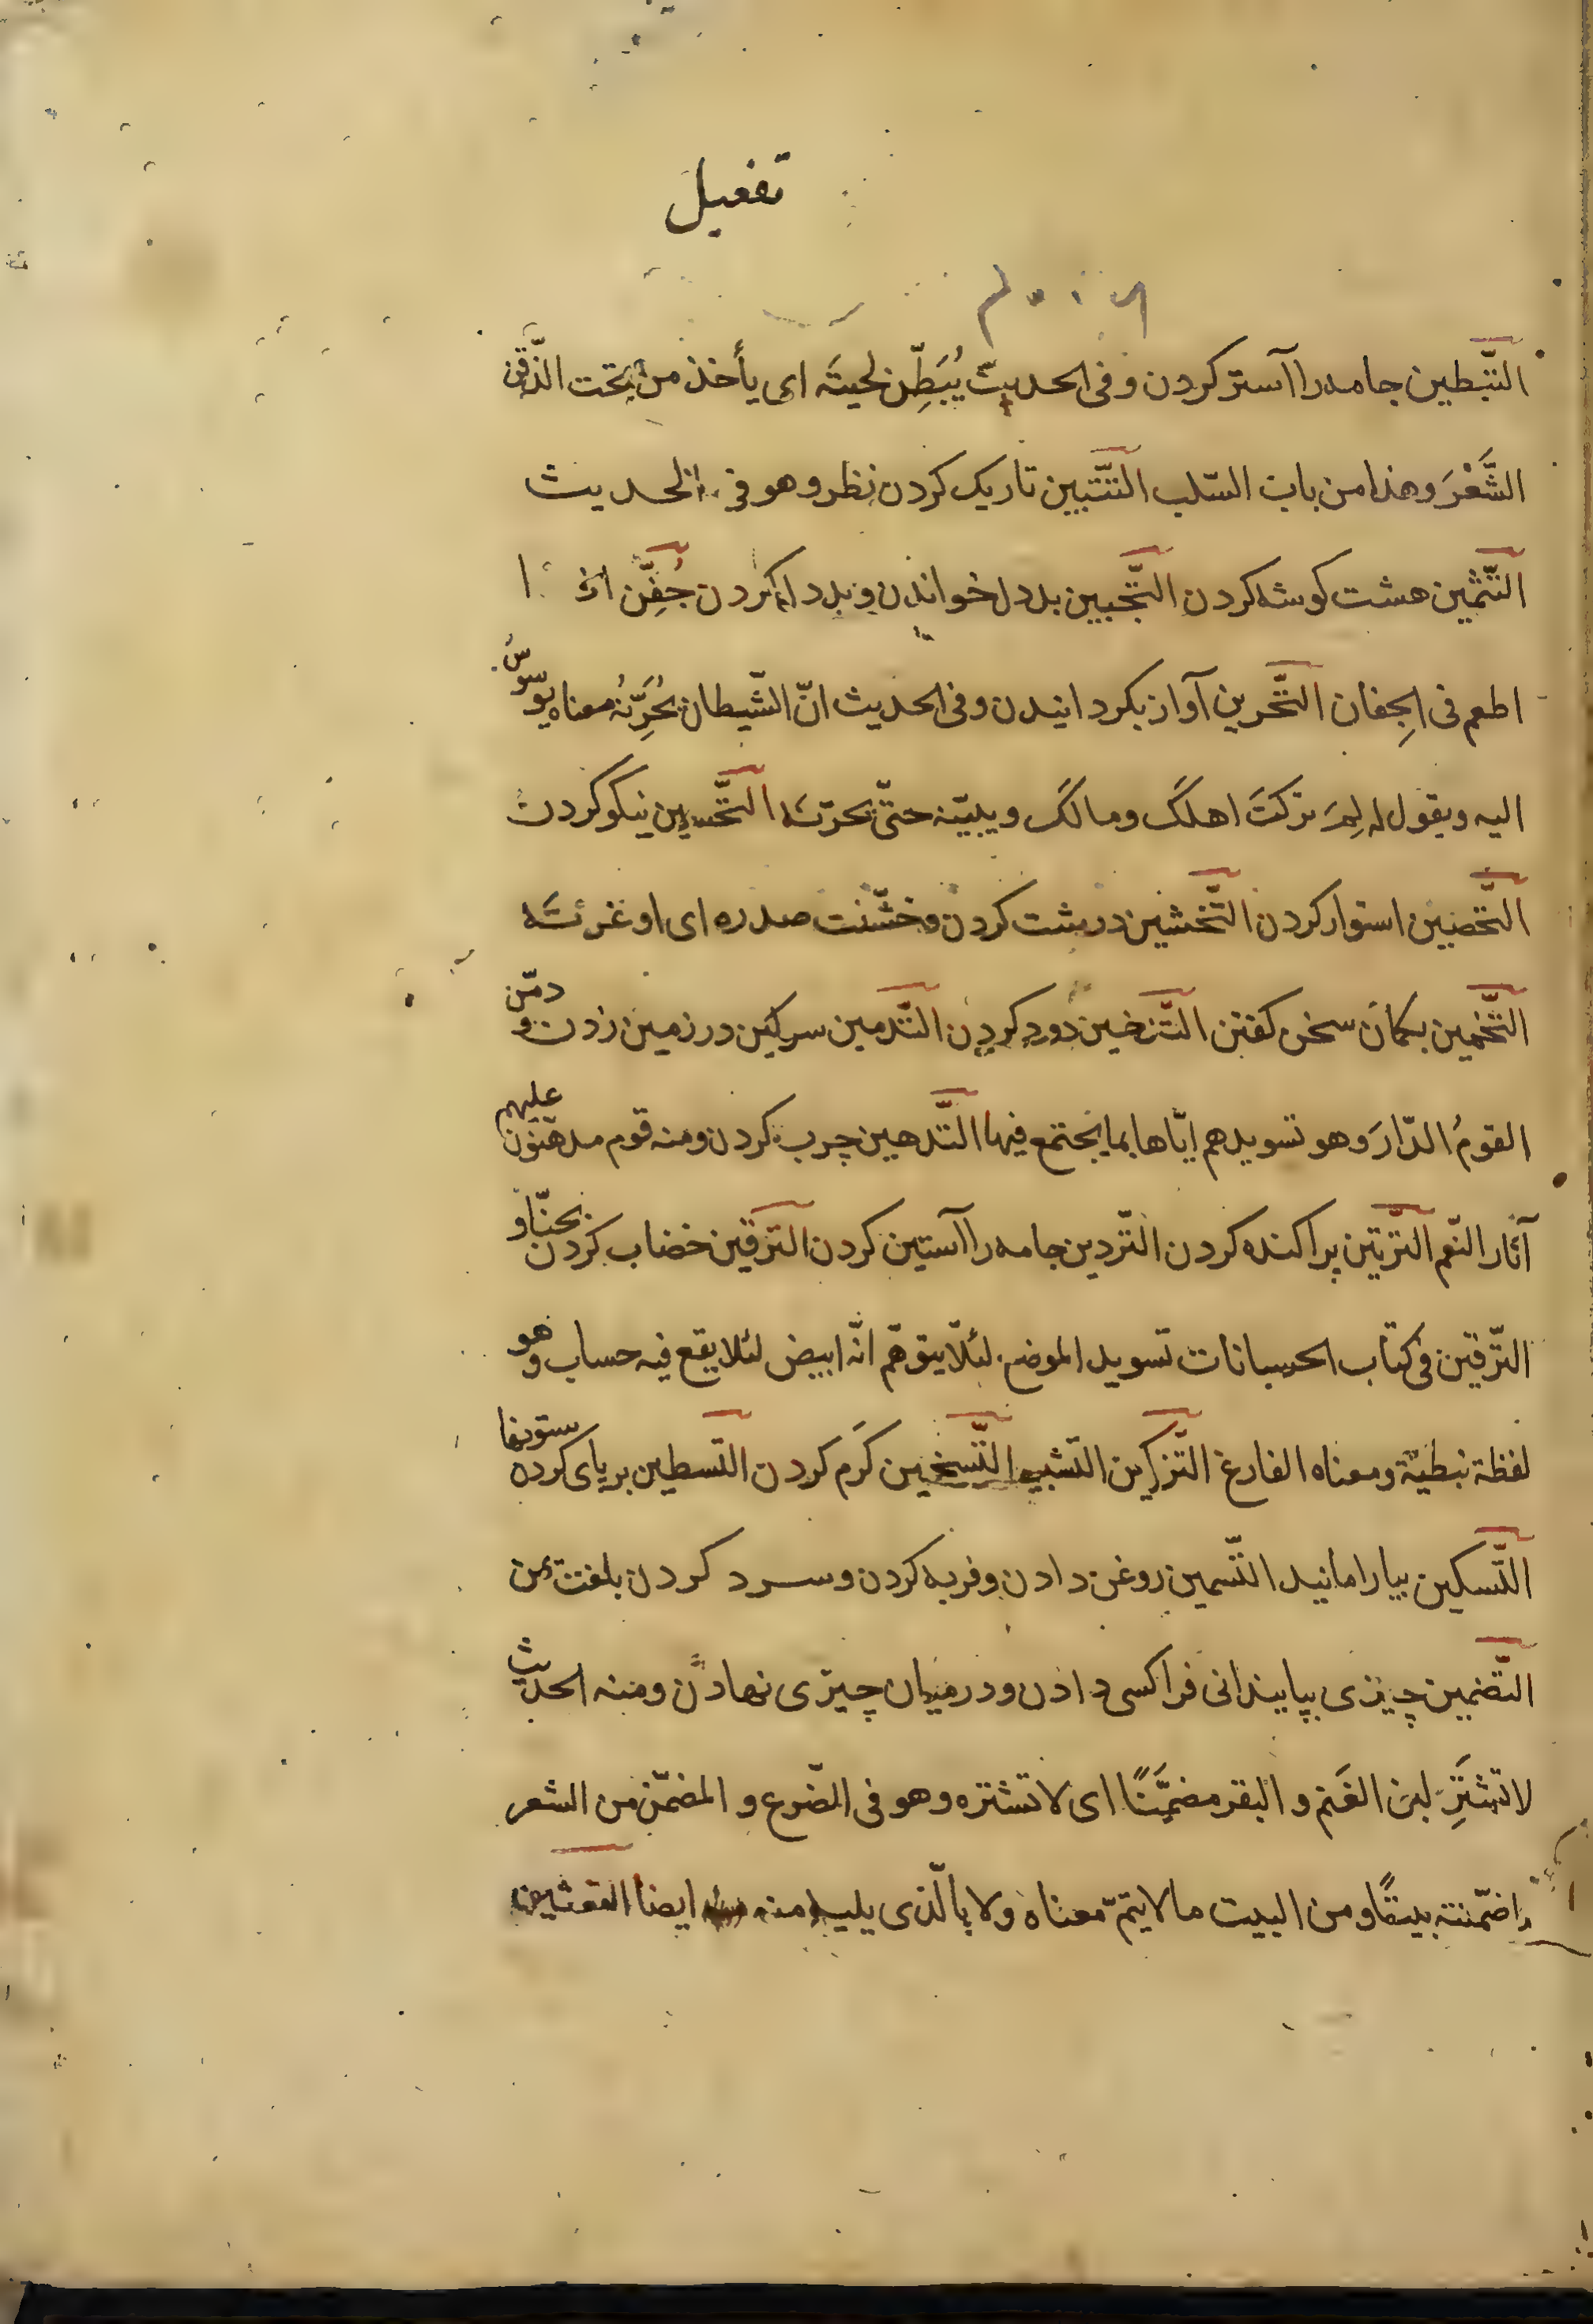 تفعیل
التَّبطین جامه را آستر کردن و فی الحدیث یُبَطِّن لحیتَه ای یأخذ من تحت الذَّقن
الشَّعْرَ وهذا من باب السّلب التَّتبین تاریک کردن نظر و هو فی الحدیث
التَّثمین هشت کوشه کردن التَّجبین بددل خواندن و بددل کردن جُفِّن اذا
اطعم فی الجِفان التَّحرین آواز بکردانیدن و فی الحدیث انّ الشّیطان یُحَرِّنُه معناه یوسوسُ
الیه ویقول له لِمَ ترکتَ اهلک ومالک ویبیّنه حتّی یحرّنه التَّحسین نیکو کردن
التَّحصین استوار کردن التَّخشین درشت کردن وخشّنت صدره ای اوغرتَه
التَّخمین بکمان سخن کفتن التَّدخین دود کردن التَّدمین سرکین در زمین زدن و دمّن
القومُ الدّارَ وهو تسویدهم ایّاها بما یجتمع فیها التَّدهین چرب کردن ومنه قوم مدهّنون علیهم
آثار النّعم التَّزتین پراکنده کردن التّردین جامه را آستین کردن الترقین خضاب کردن بحنّا و
الترّقین فی کتاب الحسبانات تسوید الموضع لئلّا یتوهّم انّه ابیض لئلا یقع فیه حساب وهو
لفظة نبطیّة ومعناه الفارغ التَّزکین التشبیه التَّسخین کرم کردن التسطین برپای کرده ستونها
التَّسکین بیارامانید التَّسمین روغن دادن وفربه کردن وسرد کردن بلغت یمن
التَّضمین چیزی بپایندانی فرا کسی دادن ودر میان چیزی نهادن ومنه الحدیث
لاتشتَرِ لبن الغَنم و البقر مضمَّنًا ای لا تشتره وهو فی الضّرع و المضمّن من الشعر
ما ضمّنته بیتًا ومن البیت ما لا یتمّ معناه ولا بالّذی یلیه منه ایضا